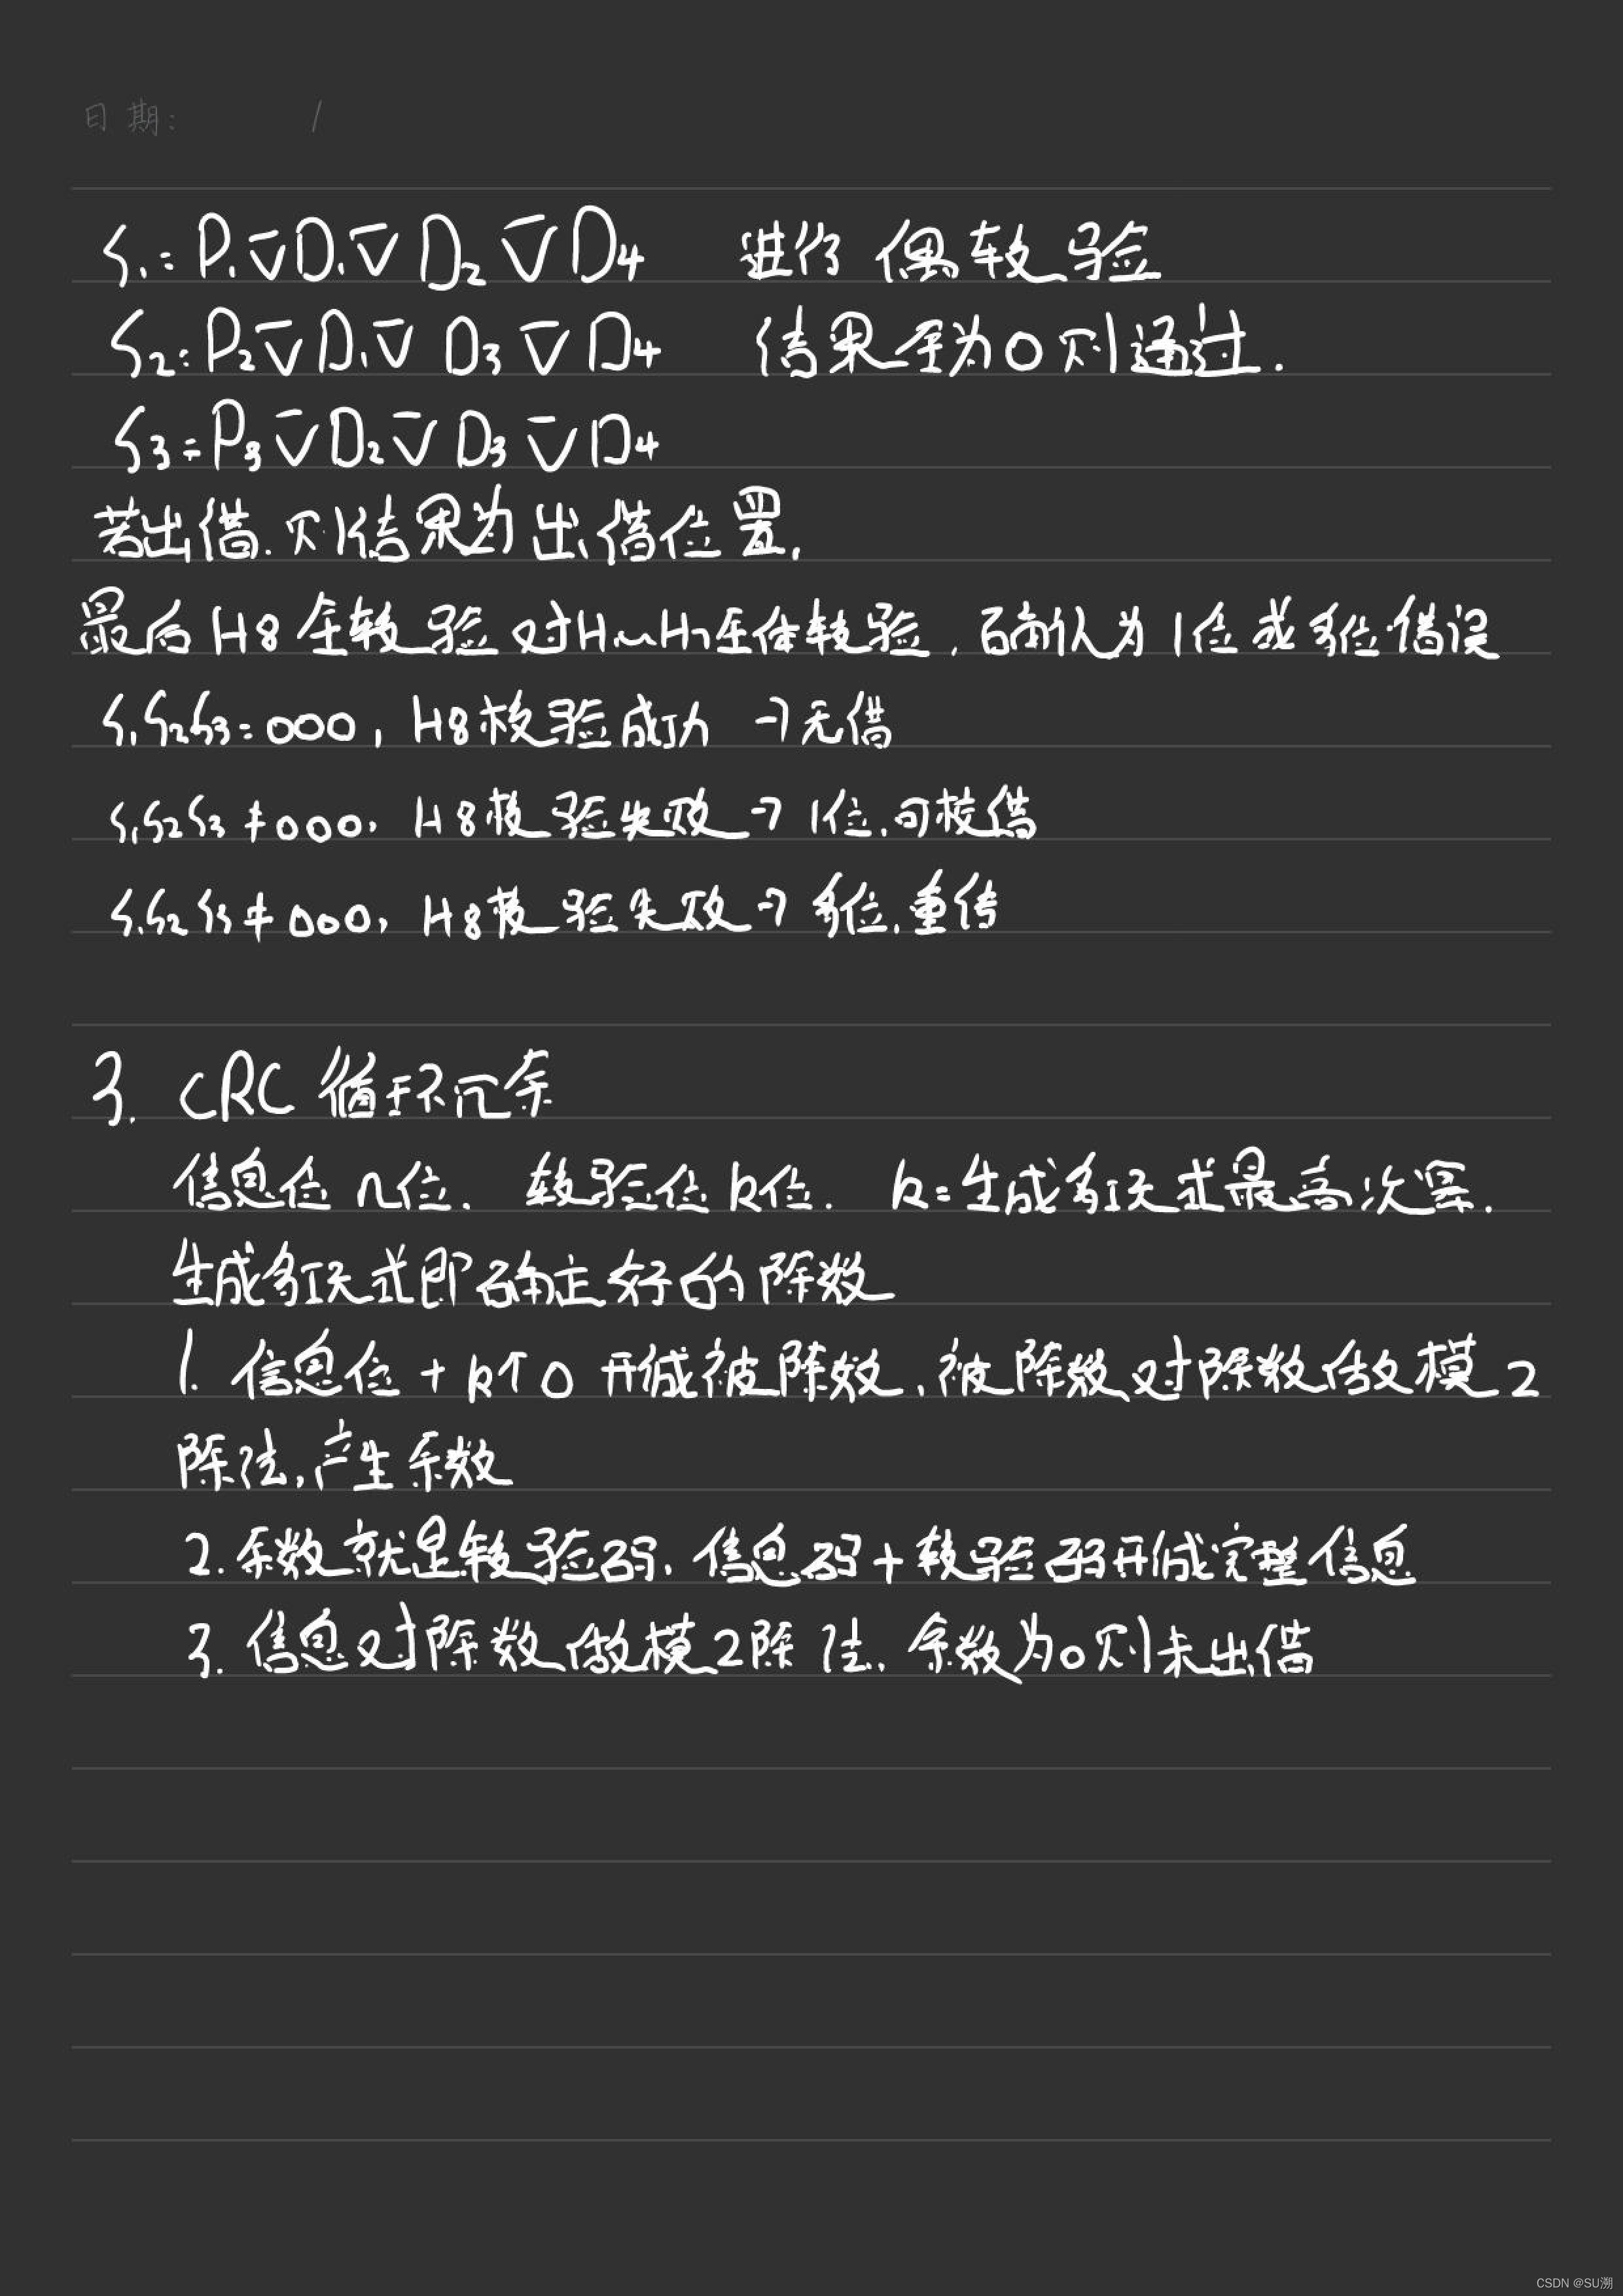 日期: /
S₁=P₁⊽D₁⊽D₂⊽D₄ 进行偶较验
S₂=P₂⊽D₁⊽D₃⊽D₄ 结果全为0则通过.
S₃=P₃⊽D₂⊽D₃⊽D₄
若出错,则结果为出错位置,
最后H8全较验对H₁~H₇全体较验,确认为1位或多位错误
S₁S₂S₃=000, H8校验成功 →无错
S₁S₂S₃≠000, H8校验失败→1位,可校错
S₁S₂S₃≠000, H8校验失败→多位,重传
3. CRC循环冗余
信息位n位, 较验位k位. k=生成多项式最高次幂.
生成多项式即确定好的除数
1. 信息位+k个0 形成被除数,被除数对除数做模2
除法,产生余数
2.余数就是较验码,信息码+较验码形成完整信息
3.信息对除数做模2除法,余数为0则未出错
CSDN @SU溯